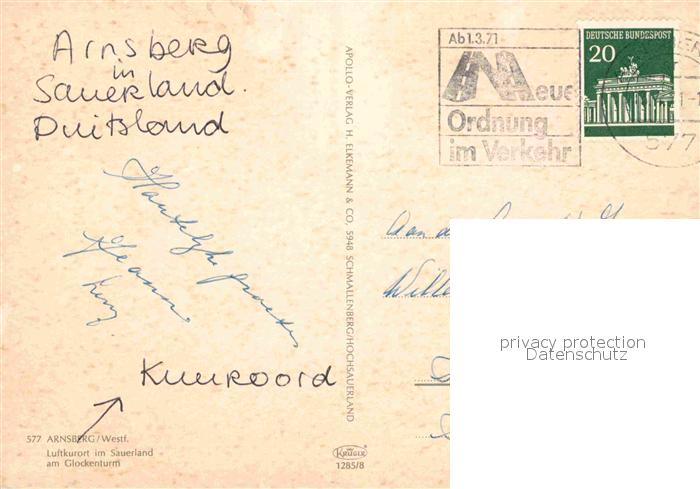 Arnsberg
in
Sauerland.
Duitsland
Hartelijke groeten
Kuuroord
577 ARNSBERG/Westf.
Luftkurort im Sauerland
am Glockenturm
APOLLO-VERLAG H. ELKEMANN & CO, 5948 SCHMALLENBERG/HOCHSAUERLAND
KRÜGER
1285/8
Ab 1.3.71
Neue
Ordnung
im Verkehr
DEUTSCHE BUNDESPOST
20
577
Aan de
privacy protection
Datenschutz